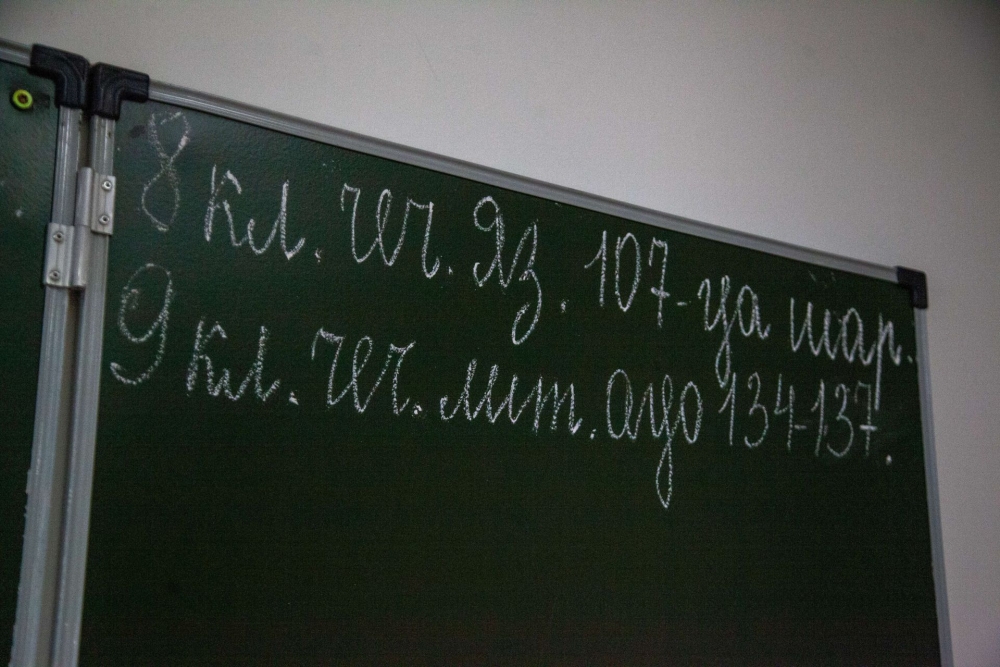 8 кл. чеч. яз. 107-ца шар.
9 кл. чеч. лит. агӏо 134-137.